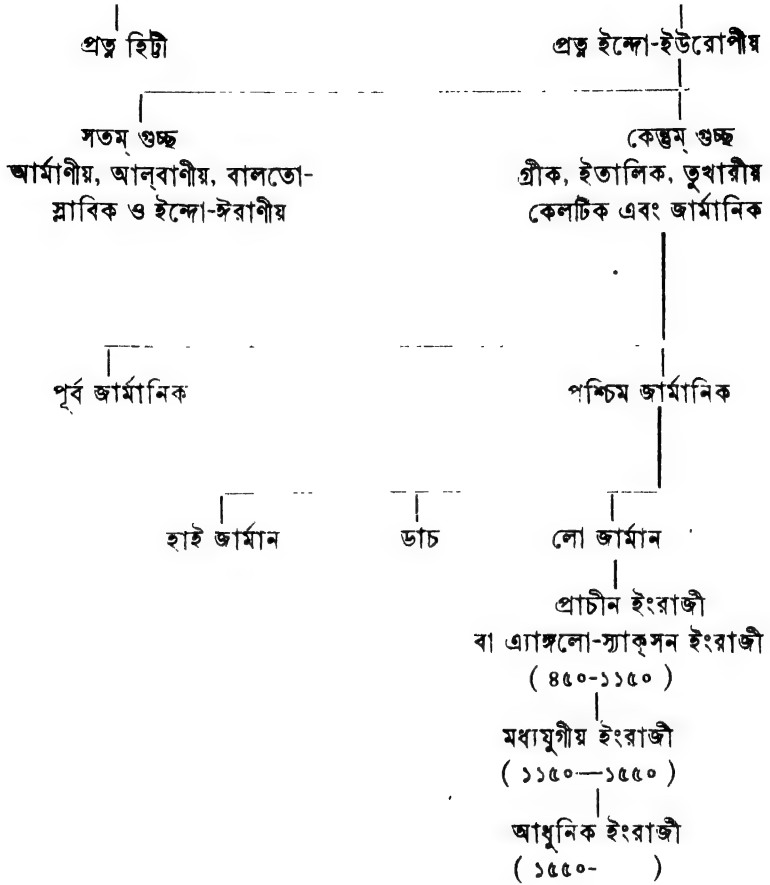 প্রত্ন হিট্টী
প্রত্ন ইন্দো-ইউরোপীয়
সতম্ গুচ্ছ
আর্মাণীয়, আল্‌বাণীয়, বালতো-
স্লাবিক ও ইন্দো-ঈরাণীয়
কেন্তুম্ গুচ্ছ
গ্রীক, ইতালিক, তুখারীয়
কেলটিক এবং জার্মানিক
পূর্ব জার্মানিক
পশ্চিম জার্মানিক
হাই জার্মান
ডাচ
লো জার্মান
প্রাচীন ইংরাজী
বা এ্যাঙ্গলো-স্যাক্‌সন ইংরাজী
( ৪৫০-১১৫০ )
মধ্যযুগীয় ইংরাজী
( ১১৫০—১৫৫০ )
আধুনিক ইংরাজী
( ১৫৫০- )